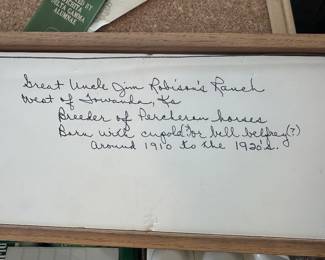 WICHITA
DELTA GAMMA
ALUMNAE
Great Uncle Jim Robison's Ranch
West of Towanda, Ks
Breeder of Percheron horses
Barn with cupola(?)or bell belfrey(?)
Around 1910 to the 1920's.